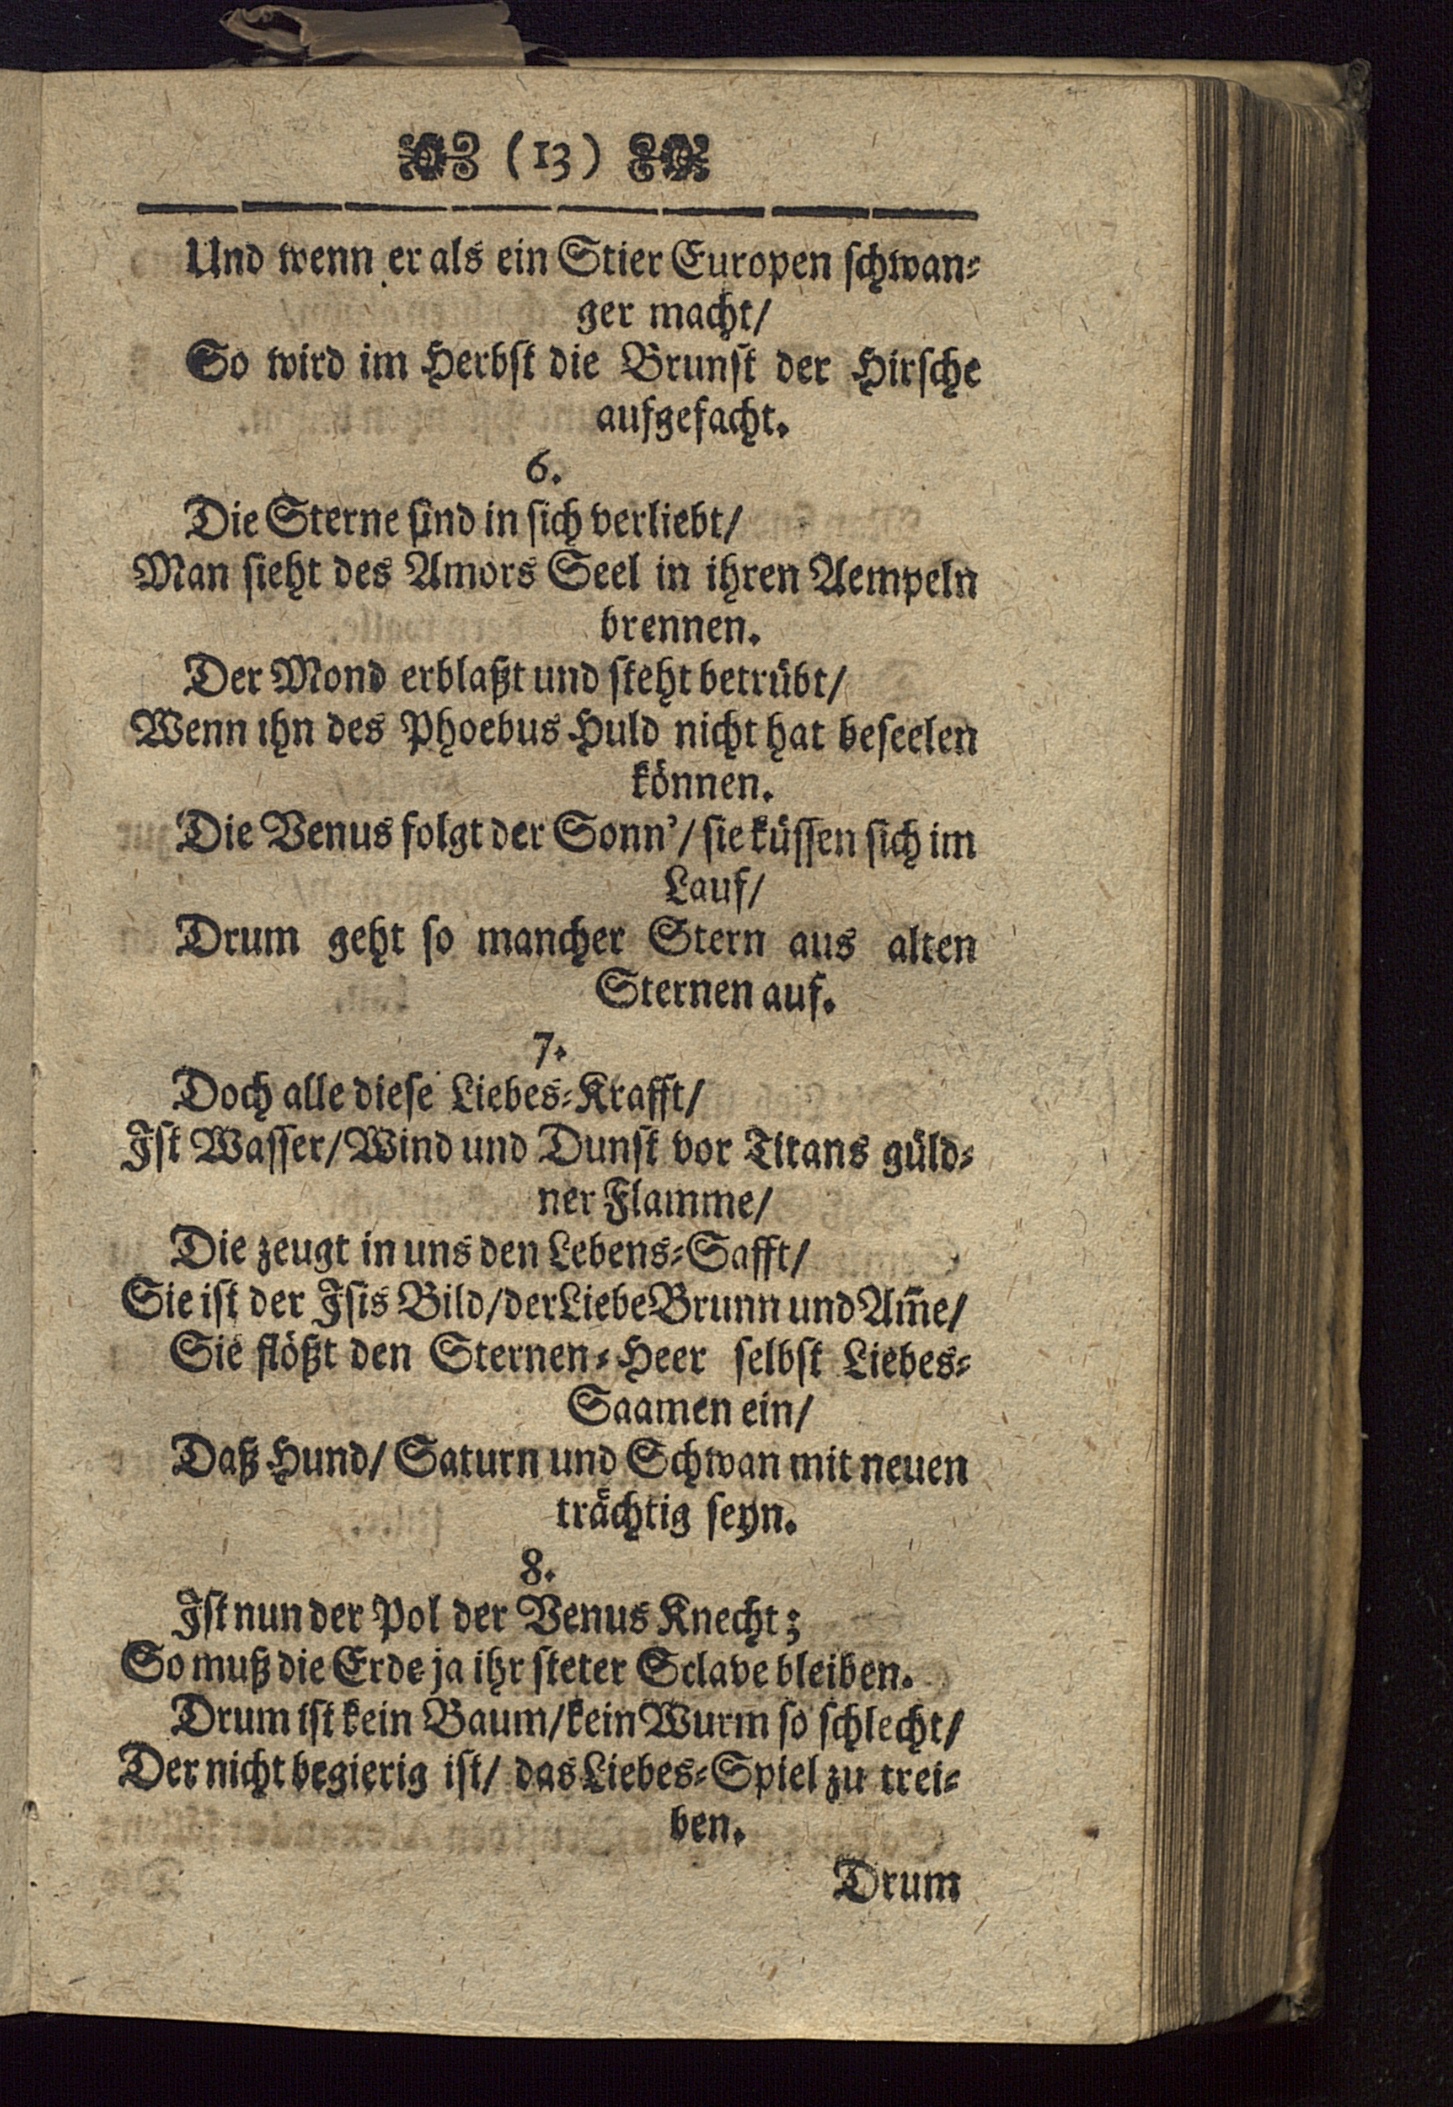 (13)
Und wenn er als ein Stier Europen schwan-
ger macht/
So wird im Herbst die Brunst der Hirsche
aufgefacht.
6.
Die Sterne sind in sich verliebt/
Man sieht des Amors Seel in ihren Aempeln
brennen.
Der Mond erblaßt und steht betrübt/
Wenn ihn des Phoebus Huld nicht hat beseelen
können.
Die Venus folgt der Sonn'/ sie küssen sich im
Lauf/
Drum geht so mancher Stern aus alten
Sternen auf.
7.
Doch alle diese Liebes-Krafft/
Ist Wasser/ Wind und Dunst vor Titans güld-
ner Flamme/
Die zeugt in uns den Lebens-Safft/
Sie ist der Isis Bild/ der Liebe Brunn und Am̃e/
Sie flößt den Sternen-Heer selbst Liebes-
Saamen ein/
Daß Hund/ Saturn und Schwan mit neuen
trächtig seyn.
8.
Ist nun der Pol der Venus Knecht;
So muß die Erde ja ihr steter Sclave bleiben.
Drum ist kein Baum/ kein Wurm so schlecht/
Der nicht begierig ist/ das Liebes-Spiel zu trei-
ben.
Drum